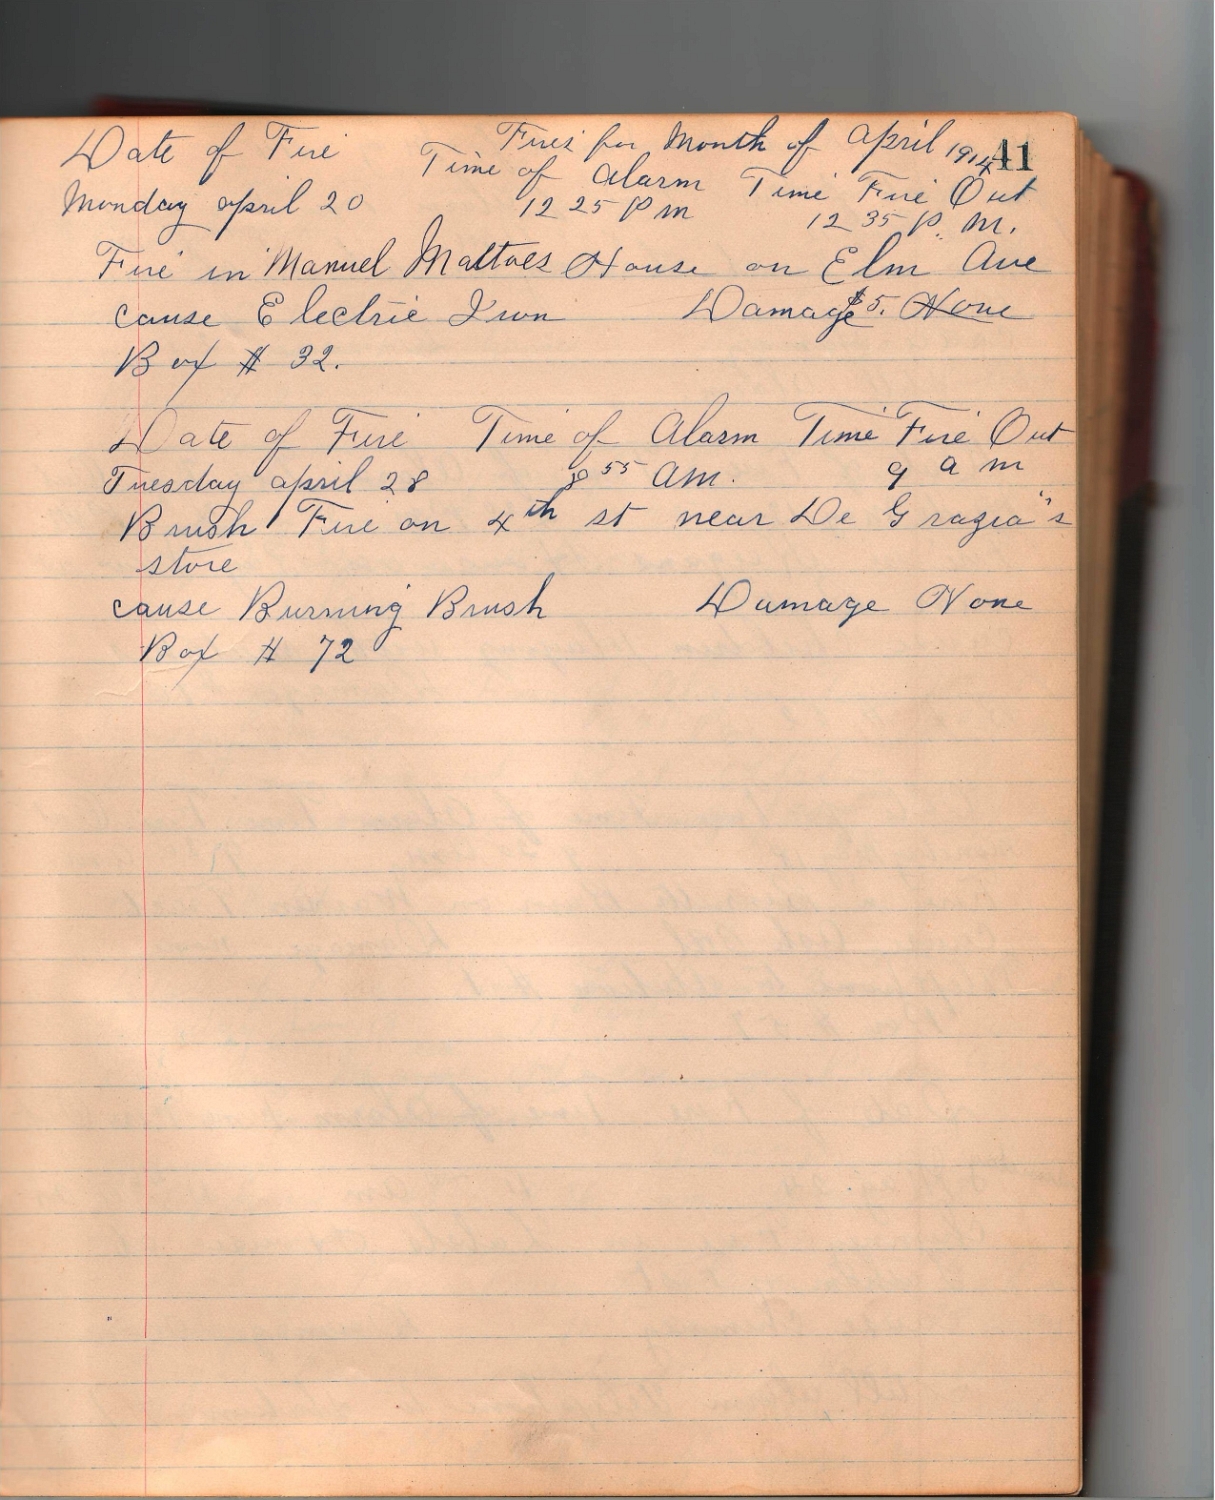 Fires for Month of April 1914 41
Date of Fire Time of Alarm Time Fire Out
Monday april 20 12 25 P m 12 35 P. M.
Fire in Manuel Mattoes House on Elm Ave
cause Electric Iron Damage $5. None
Box # 32.
Date of Fire Time of Alarm Time Fire Out
Tuesday april 28 8 55 AM. 9 a m
Brush Fire on 4th st near De Grazia"s
store
cause Burning Brush Damage None
Box # 72